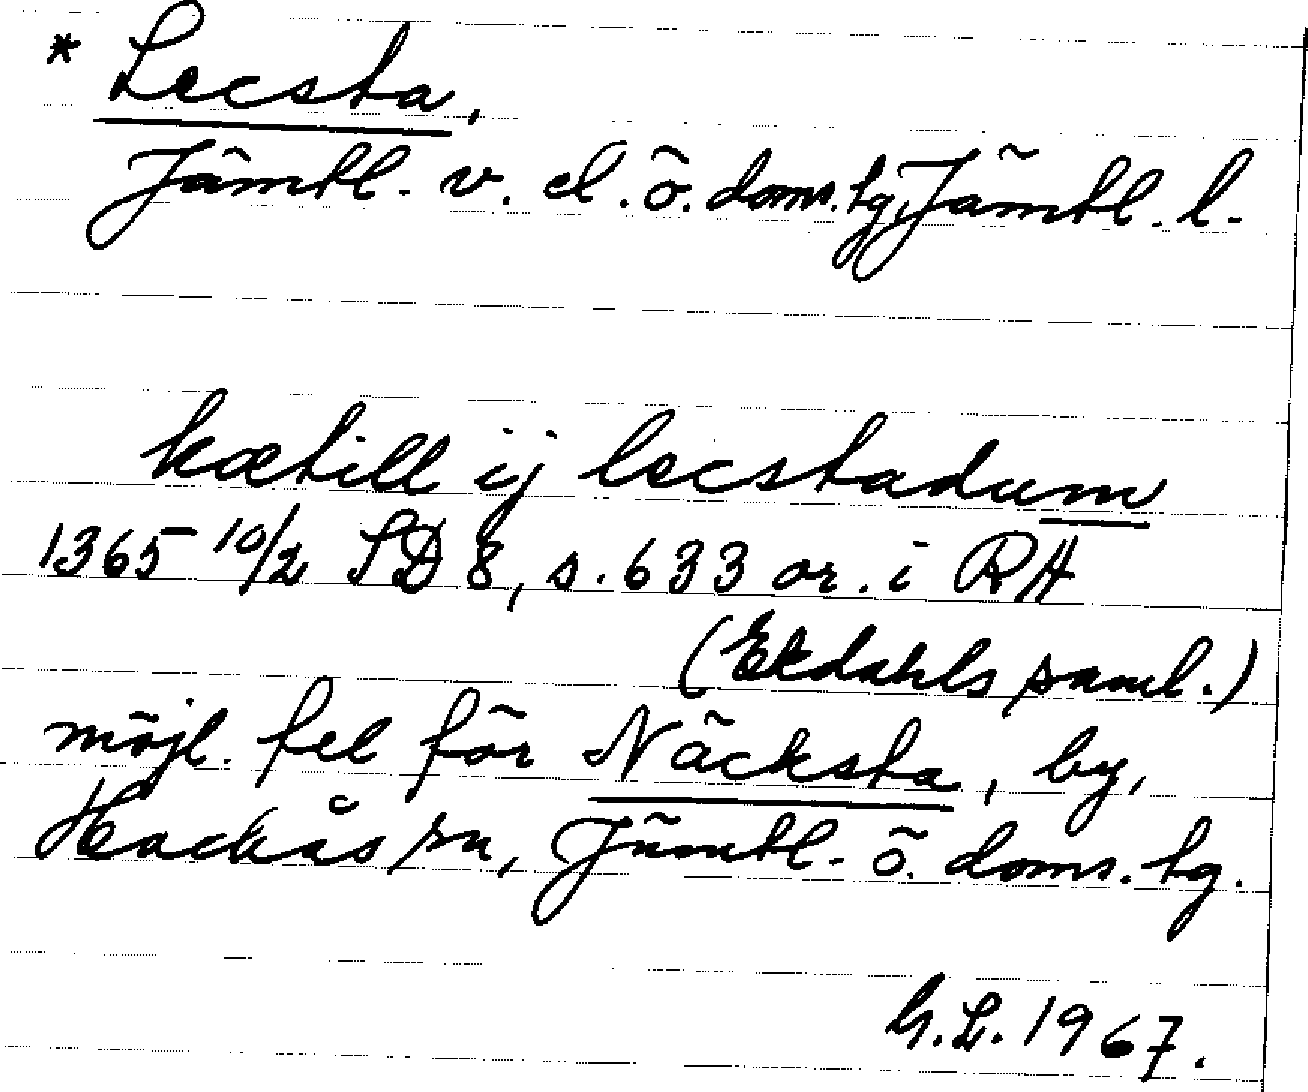 * Lecsta,
Jämtl. v. el. ö. doms. tg, Jämtl. l.
kætill ij lecstadum
1365 10/2 SD 8, s. 633 or. i RA
(Ekdahls saml.)
möjl. fel för Näcksta, by,
Hackås sn, Jämtl. ö. doms. tg.
G. L. 1967.